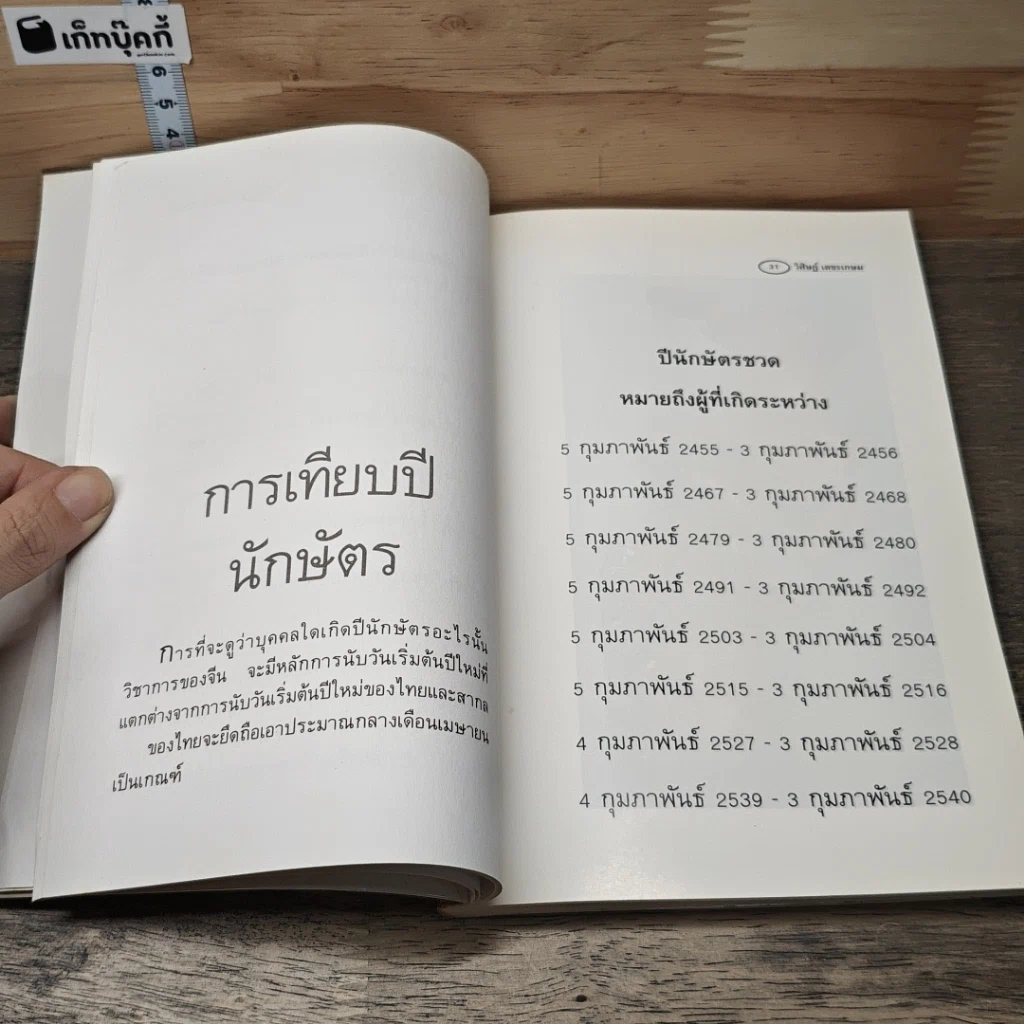 เก็ทบุ๊คกี้
6
5
4
การเทียบปี
นักษัตร
การที่จะดูว่าบุคคลใดเกิดปีนักษัตรอะไรนั้น
วิชาการของจีน จะมีหลักการนับวันเริ่มต้นปีใหม่ที่
แตกต่างจากการนับวันเริ่มต้นปีใหม่ของไทยและสากล
ของไทยจะยึดถือเอาประมาณกลางเดือนเมษายน
เป็นเกณฑ์
31 วิศิษฏ์ เตชะเกษม
ปีนักษัตรชวด
หมายถึงผู้ที่เกิดระหว่าง
5 กุมภาพันธ์ 2455 - 3 กุมภาพันธ์ 2456
5 กุมภาพันธ์ 2467 - 3 กุมภาพันธ์ 2468
5 กุมภาพันธ์ 2479 - 3 กุมภาพันธ์ 2480
5 กุมภาพันธ์ 2491 - 3 กุมภาพันธ์ 2492
5 กุมภาพันธ์ 2503 - 3 กุมภาพันธ์ 2504
5 กุมภาพันธ์ 2515 - 3 กุมภาพันธ์ 2516
4 กุมภาพันธ์ 2527 - 3 กุมภาพันธ์ 2528
4 กุมภาพันธ์ 2539 - 3 กุมภาพันธ์ 2540